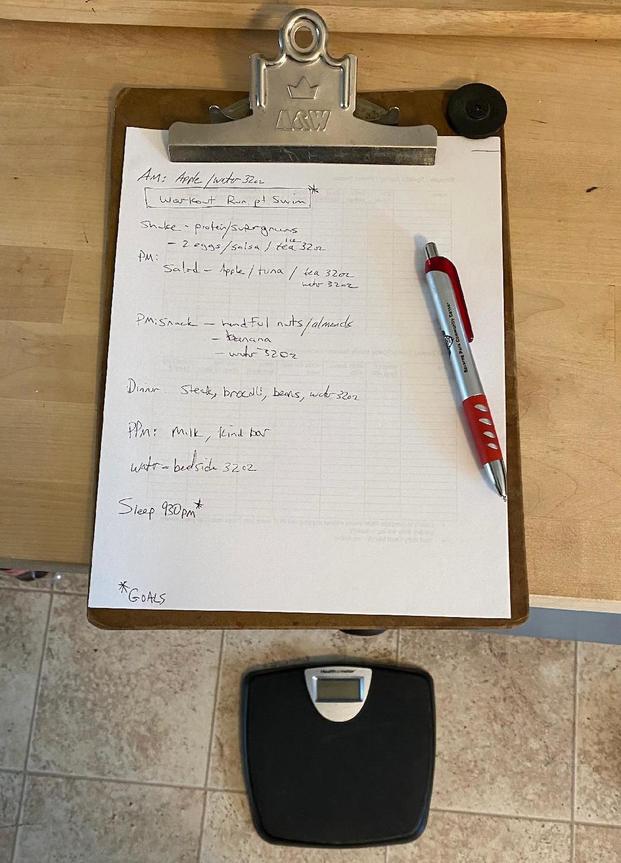 A&W
AM: Apple / water 32oz
Workout Run pt Swim *
Shake - protein/supergreens
- 2 eggs / salsa / ice tea 32oz
PM:
Salad - Apple / tuna / tea 32oz
water 32oz
PM: snack - handful nuts/almonds
- banana
- water 32oz
Dinner Steak, brocolli, beans, water 32oz
PPM: Milk, Kind bar
water - bedside 32oz
Sleep 930pm*
*GOALS
Health o meter